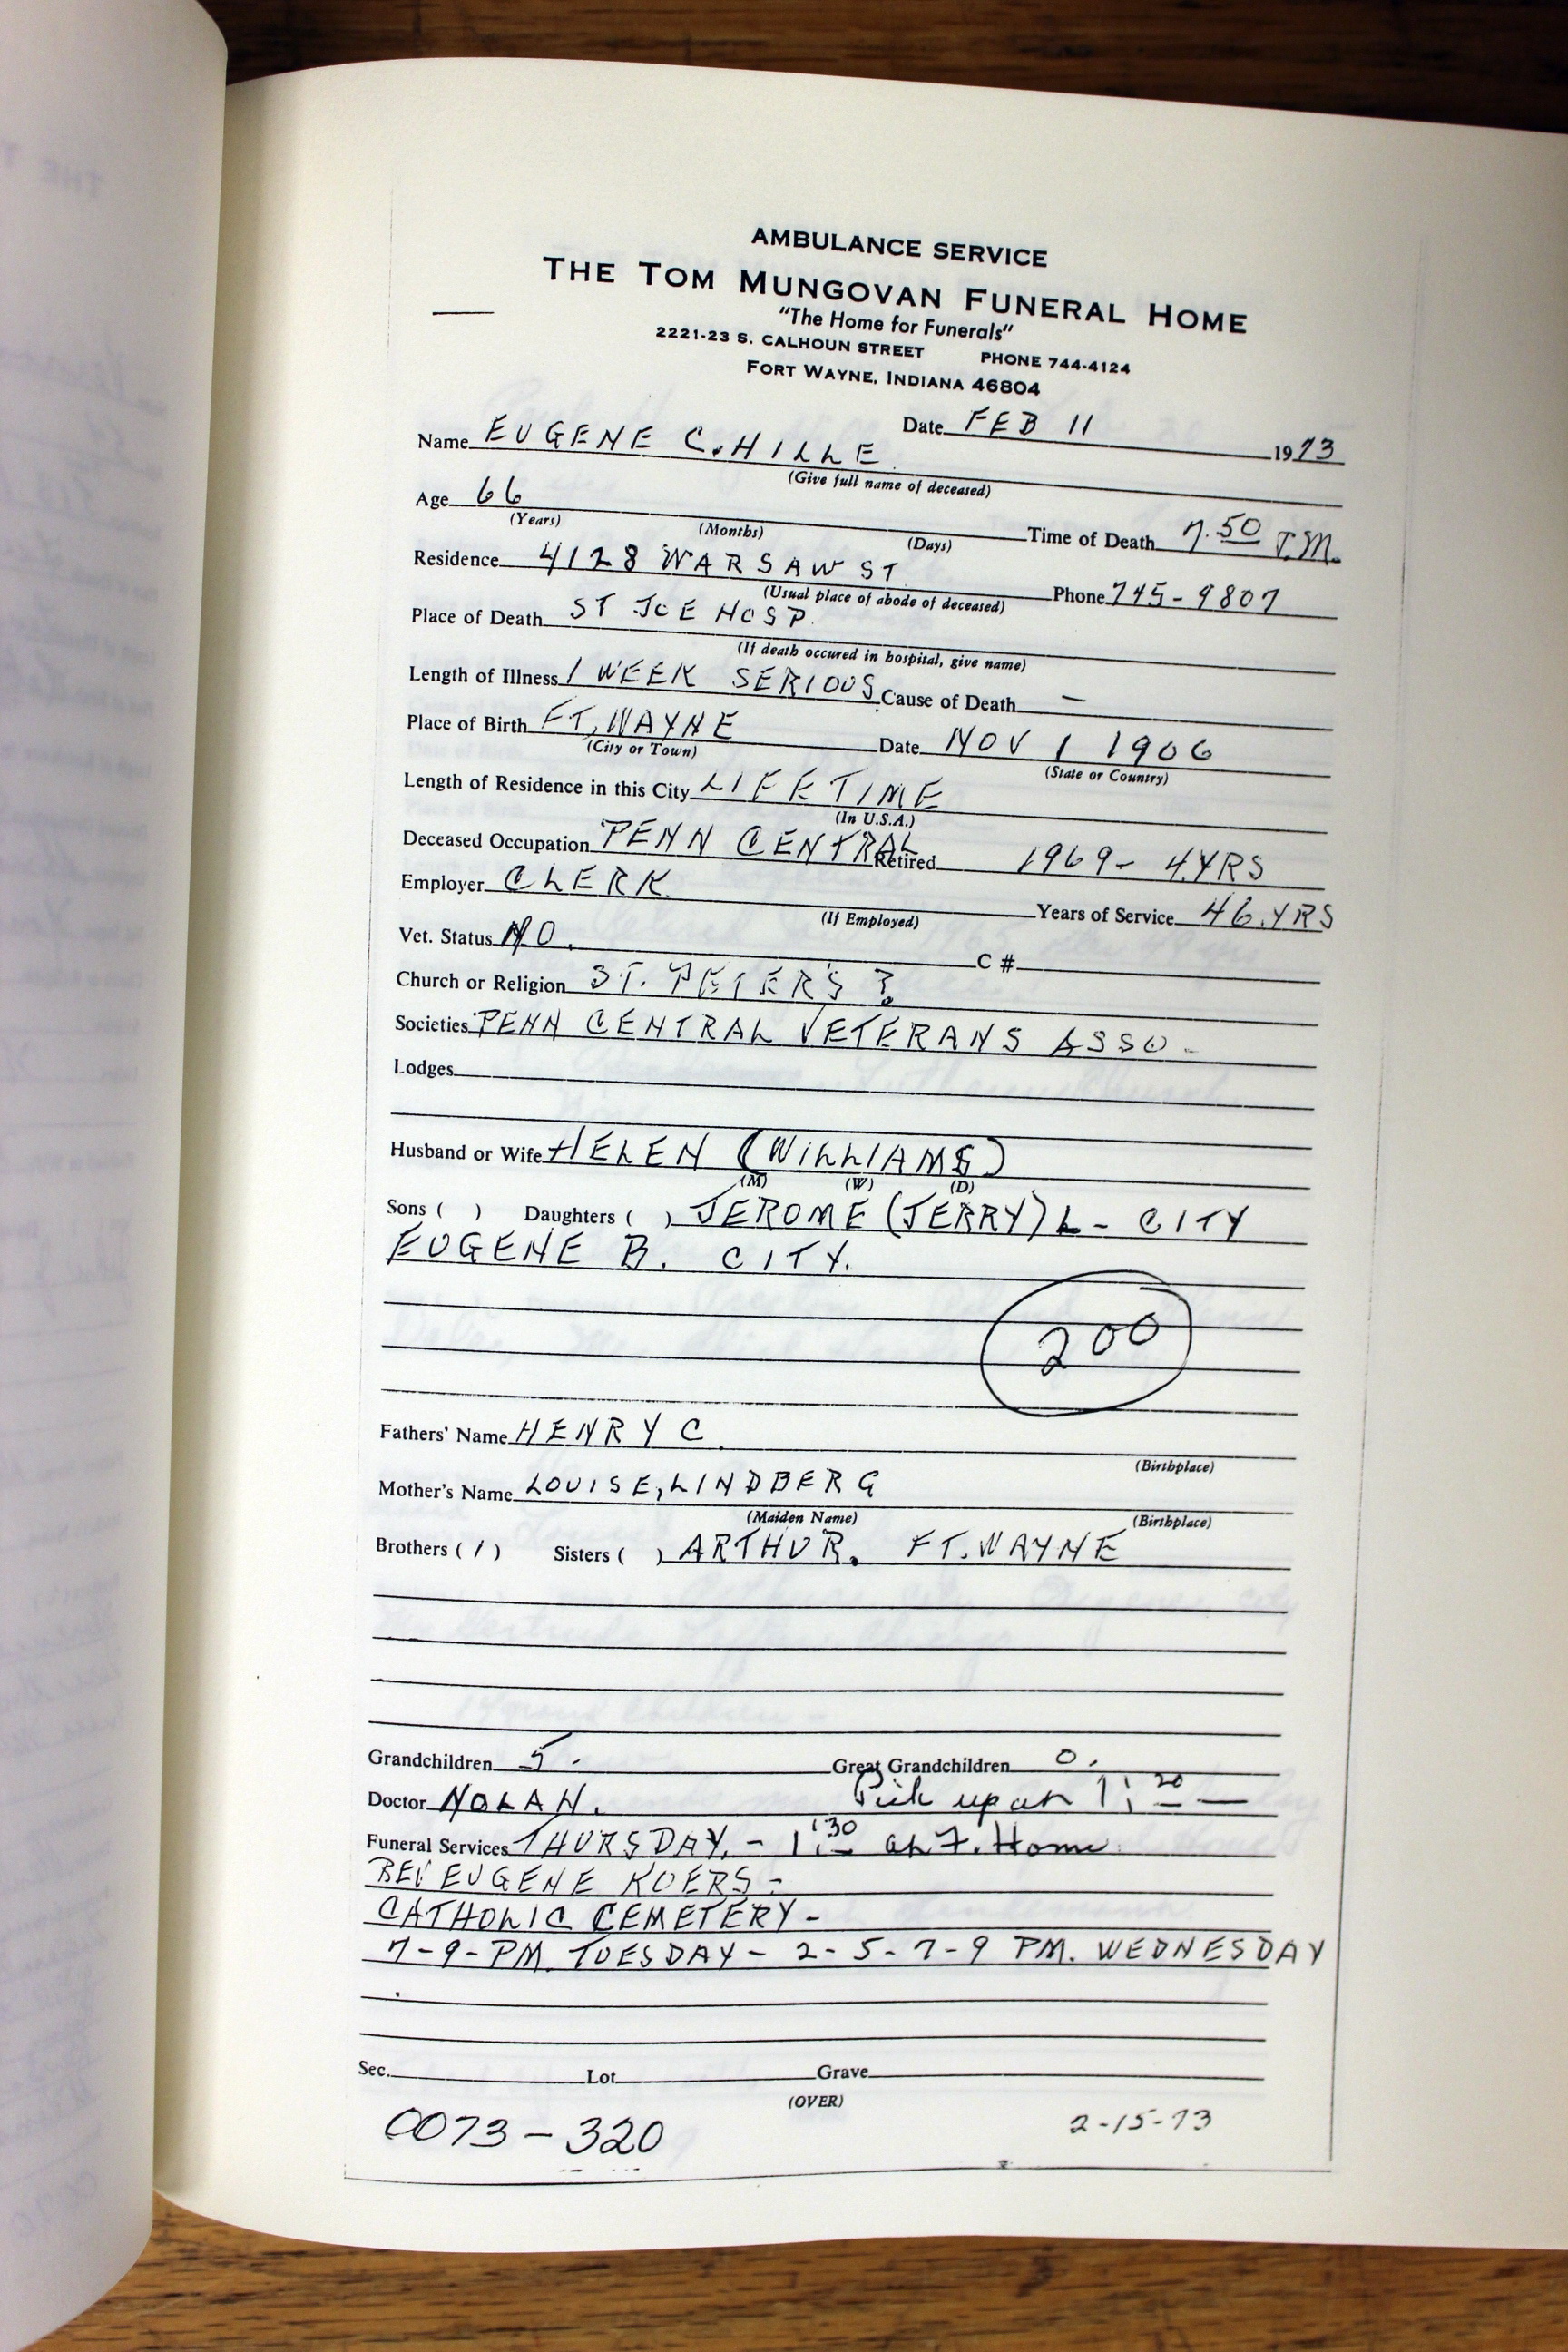 AMBULANCE SERVICE
THE TOM MUNGOVAN FUNERAL HOME
"The Home for Funerals"
2221-23 S. CALHOUN STREET PHONE 744-4124
FORT WAYNE, INDIANA 46804
Name EUGENE C. HILLE Date FEB 11 1973
(Give full name of deceased)
Age 66 Time of Death 7.50 P.M.
(Years) (Months) (Days)
Residence 4128 WARSAW ST Phone 745-9807
(Usual place of abode of deceased)
Place of Death ST JOE HOSP.
(If death occured in hospital, give name)
Length of Illness 1 WEEK SERIOUS Cause of Death —
Place of Birth FT. WAYNE Date NOV 1 1906
(City or Town) (State or Country)
Length of Residence in this City LIFETIME
(In U.S.A.)
Deceased Occupation PENN CENTRAL Retired 1969- 4 YRS
Employer CLERK Years of Service 46. YRS
(If Employed)
Vet. Status NO. C #
Church or Religion ST. PETER'S ?
Societies PENN CENTRAL VETERANS ASSO -
Lodges
Husband or Wife HELEN (WILLIAMS)
(M) (W) (D)
Sons ( ) Daughters ( ) JEROME (JERRY) L - CITY
EUGENE B. CITY.
200
Fathers' Name HENRY C.
(Birthplace)
Mother's Name LOUISE, LINDBERG
(Maiden Name) (Birthplace)
Brothers (1) Sisters ( ) ARTHUR. FT. WAYNE
Grandchildren 5. Great Grandchildren 0.
Doctor NOLAN. Pick up at 1:20 —
Funeral Services THURSDAY. - 1:30 at F. Home
REV EUGENE KOERS -
CATHOLIC CEMETERY -
7-9-PM. TUESDAY - 2-5-7-9 PM. WEDNESDAY
Sec. Lot Grave
(OVER)
0073-320 2-15-73